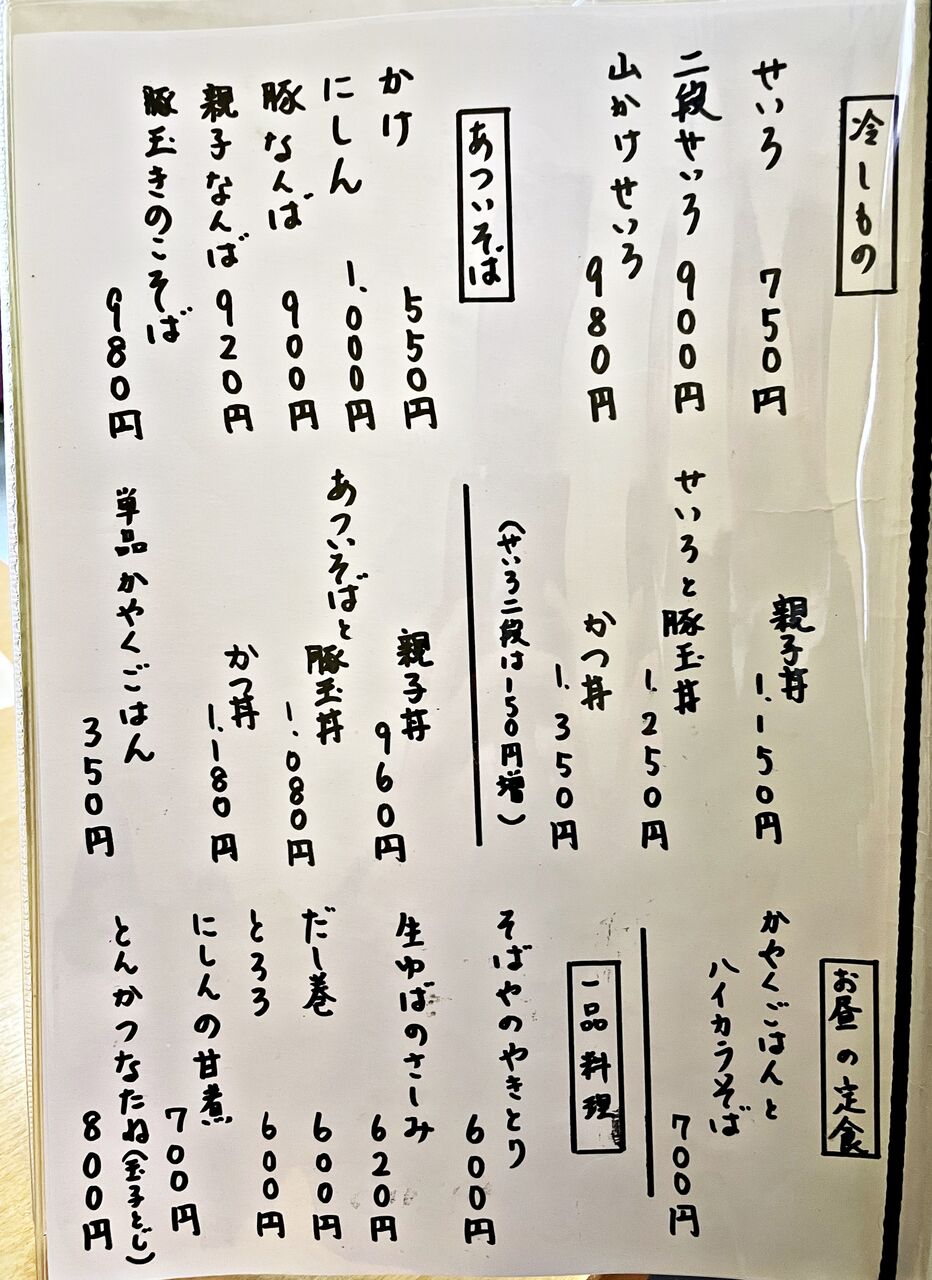 冷しもの
せいろ 750円
二段せいろ 900円
山かけせいろ 980円
あついそば
かけ 550円
にしん 1.000円
豚なんば 900円
親子なんば 920円
豚玉きのこそば 980円
親子丼 1.150円
せいろと豚玉丼 1.250円
かつ丼 1.350円
(せいろ二段は150円増)
親子丼 960円
あついそばと
豚玉丼 1.080円
かつ丼 1.180円
単品かやくごはん 350円
お昼の定食
かやくごはんと
ハイカラそば 700円
一品料理
そばやのやきとり 600円
生ゆばのさしみ 620円
だし巻 600円
とろろ 600円
にしんの甘煮 700円
とんかつなたね(玉子とじ) 800円